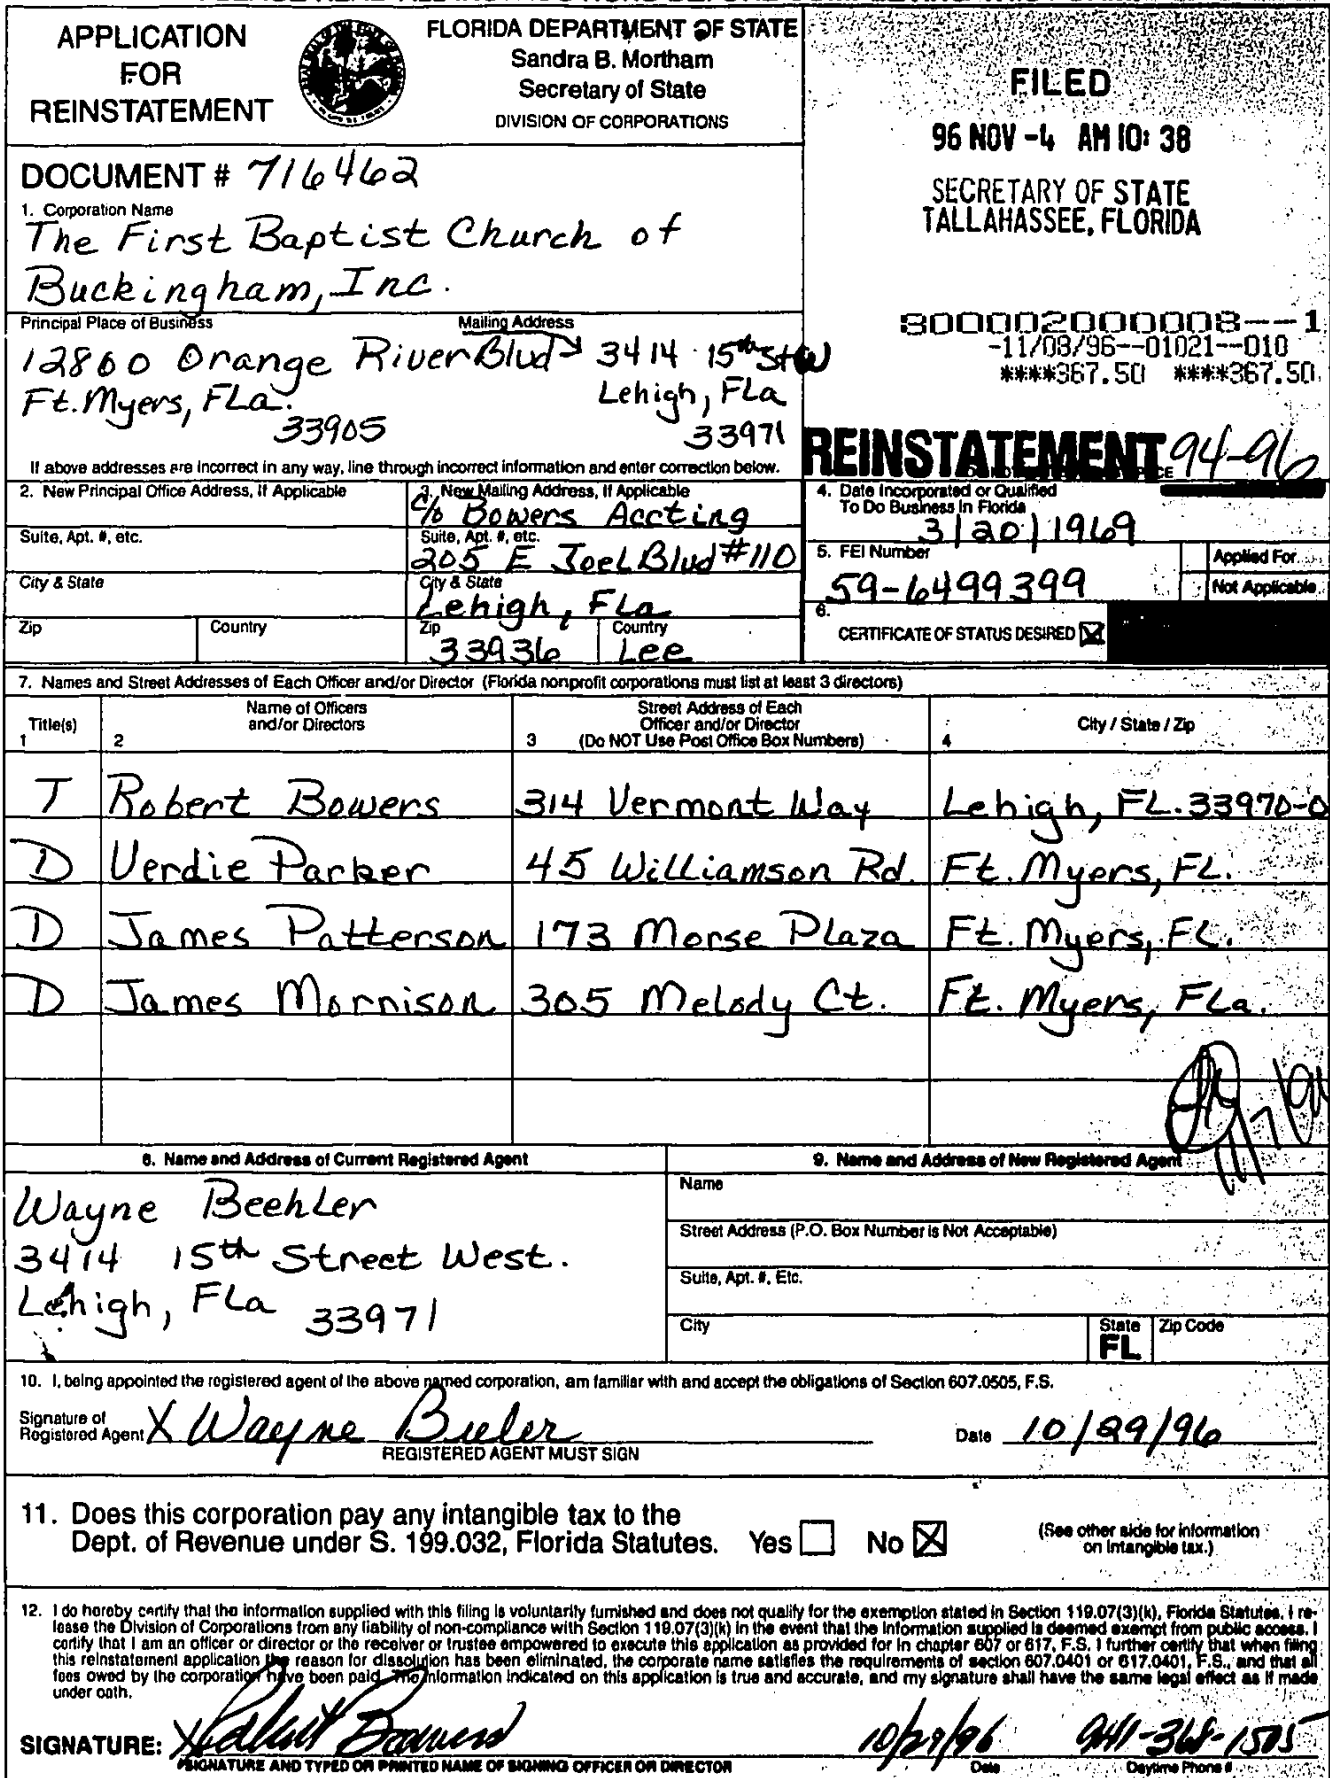 APPLICATION
FOR
REINSTATEMENT
FLORIDA DEPARTMENT OF STATE
Sandra B. Mortham
Secretary of State
DIVISION OF CORPORATIONS
FILED
96 NOV -4 AM 10: 38
SECRETARY OF STATE
TALLAHASSEE, FLORIDA
DOCUMENT # 716462
1. Corporation Name
The First Baptist Church of
Buckingham, Inc.
Principal Place of Business
Mailing Address
12860 Orange River Blvd
Ft. Myers, FLa.
33905
3414 15th St W
Lehigh, FLa
33971
800002000008--1
-11/08/96--01021--010
****367.50 ****367.50
If above addresses are incorrect in any way, line through incorrect information and enter correction below.
REINSTATEMENT 94-96
2. New Principal Office Address, If Applicable
3. New Mailing Address, If Applicable
c/o Bowers Accting
Suite, Apt. #, etc.
Suite, Apt. #, etc.
205 E Joel Blvd #110
City & State
City & State
Lehigh, FLa
Zip
Country
Zip
33936
Country
Lee
4. Date Incorporated or Qualified
To Do Business In Florida
3/20/1969
5. FEI Number
59-6499399
Applied For
Not Applicable
6.
CERTIFICATE OF STATUS DESIRED
7. Names and Street Addresses of Each Officer and/or Director (Florida nonprofit corporations must list at least 3 directors)
Title(s)
1
Name of Officers
and/or Directors
2
Street Address of Each
Officer and/or Director
3 (Do NOT Use Post Office Box Numbers)
City / State / Zip
4
T Robert Bowers 314 Vermont Way Lehigh, FL. 33970-0
D Verdie Parker 45 Williamson Rd. Ft. Myers, FL.
D James Patterson 173 Morse Plaza Ft. Myers, FL.
D James Mornison 305 Melody Ct. Ft. Myers, FLa.
8. Name and Address of Current Registered Agent
Wayne Beehler
3414 15th Street West.
Lehigh, FLa 33971
9. Name and Address of New Registered Agent
Name
Street Address (P.O. Box Number is Not Acceptable)
Suite, Apt. #, Etc.
City
State
FL
Zip Code
10. I, being appointed the registered agent of the above named corporation, am familiar with and accept the obligations of Section 607.0505, F.S.
Signature of
Registered Agent X Wayne Bieler
REGISTERED AGENT MUST SIGN
Date 10/29/96
11. Does this corporation pay any intangible tax to the
Dept. of Revenue under S. 199.032, Florida Statutes. Yes No
(See other side for information
on intangible tax.)
12. I do hereby certify that the information supplied with this filing is voluntarily furnished and does not qualify for the exemption stated in Section 119.07(3)(k), Florida Statutes. I re-
lease the Division of Corporations from any liability of non-compliance with Section 119.07(3)(k) in the event that the information supplied is deemed exempt from public access. I
certify that I am an officer or director or the receiver or trustee empowered to execute this application as provided for in chapter 607 or 617, F.S. I further certify that when filing
this reinstatement application the reason for dissolution has been eliminated, the corporate name satisfies the requirements of section 607.0401 or 617.0401, F.S., and that all
fees owed by the corporation have been paid. The information indicated on this application is true and accurate, and my signature shall have the same legal effect as if made
under oath.
SIGNATURE: X Robert Bowers 10/29/96 941-368-1505
SIGNATURE AND TYPED OR PRINTED NAME OF SIGNING OFFICER OR DIRECTOR
Date
Daytime Phone #